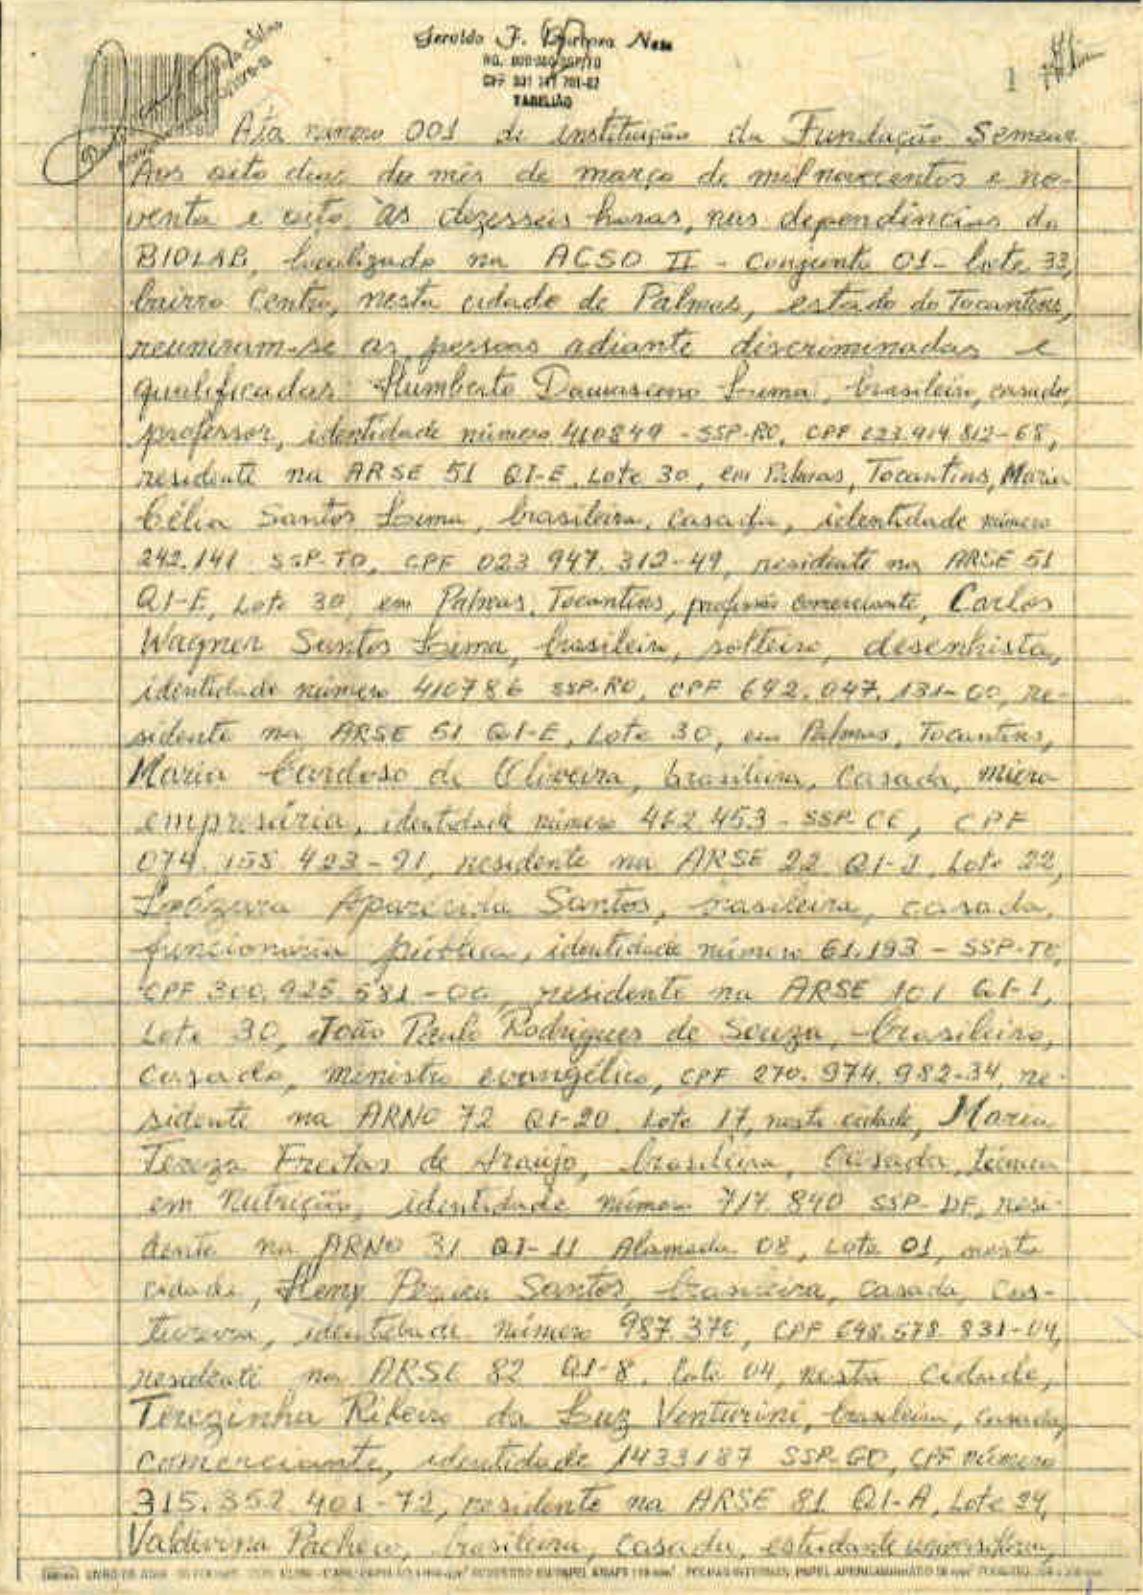 Geraldo F. Barbosa Neto
TABELIÃO
1
Ata número 001 de instituição da Fundação Semear
Aos oito dias do mês de março de mil novecentos e no-
venta e oito, às dezesseis horas, nas dependências do
BIOLAB, localizado na ACSO II - Conjunto 01 - lote 33,
bairro Centro, nesta cidade de Palmas, estado do Tocantins,
reuniram-se as pessoas adiante discriminadas e
qualificadas: Humberto Damasceno Lima, brasileiro, casado,
professor, identidade número 410849 - SSP-RO, CPF 123.914.812-68,
residente na ARSE 51 QI-E, Lote 30, em Palmas, Tocantins, Maria
Célia Santos Lima, brasileira, casada, identidade número
242.141 SSP-TO, CPF 023.947.312-49, residente na ARSE 51
QI-E, Lote 30, em Palmas, Tocantins, profissão comerciante, Carlos
Wagner Santos Lima, brasileiro, solteiro, desenhista,
identidade número 410786 SSP-RO, CPF 692.047.131-00, re-
sidente na ARSE 51 QI-E, Lote 30, em Palmas, Tocantins,
Maria Cardoso de Oliveira, brasileira, casada, micro
empresária, identidade número 462.453 - SSP-CE, CPF
074.158.423-91, residente na ARSE 22 QI-J, Lote 22,
Aparecida Santos, brasileira, casada,
funcionária pública, identidade número 61.193 - SSP-TO,
CPF 300.925.581-00, residente na ARSE 101 QI-1,
Lote 30, João Paulo Rodrigues de Souza, brasileiro,
casado, ministro evangélico, CPF 270.974.982-34, re-
sidente na ARNO 72 QI-20, Lote 17, nesta cidade, Maria
Tereza Freitas de Araujo, brasileira, casada, técnica
em Nutrição, identidade número 717.840 SSP-DF, resi-
dente na ARNO 31 QI-11 Alameda 08, Lote 01, nesta
cidade, Santos, brasileira, casada, cos-
tureira, identidade número 987.370, CPF 698.578.831-04,
residente na ARSE 82 QI-8, Lote 04, nesta cidade,
Terezinha Ribeiro da Luz Venturini, brasileira, casada,
comerciante, identidade 1433187 SSP-GO, CPF número
315.352.401-72, residente na ARSE 81 QI-A, Lote 34,
Valdivina Pacheco, brasileira, casada, estudante universitária,